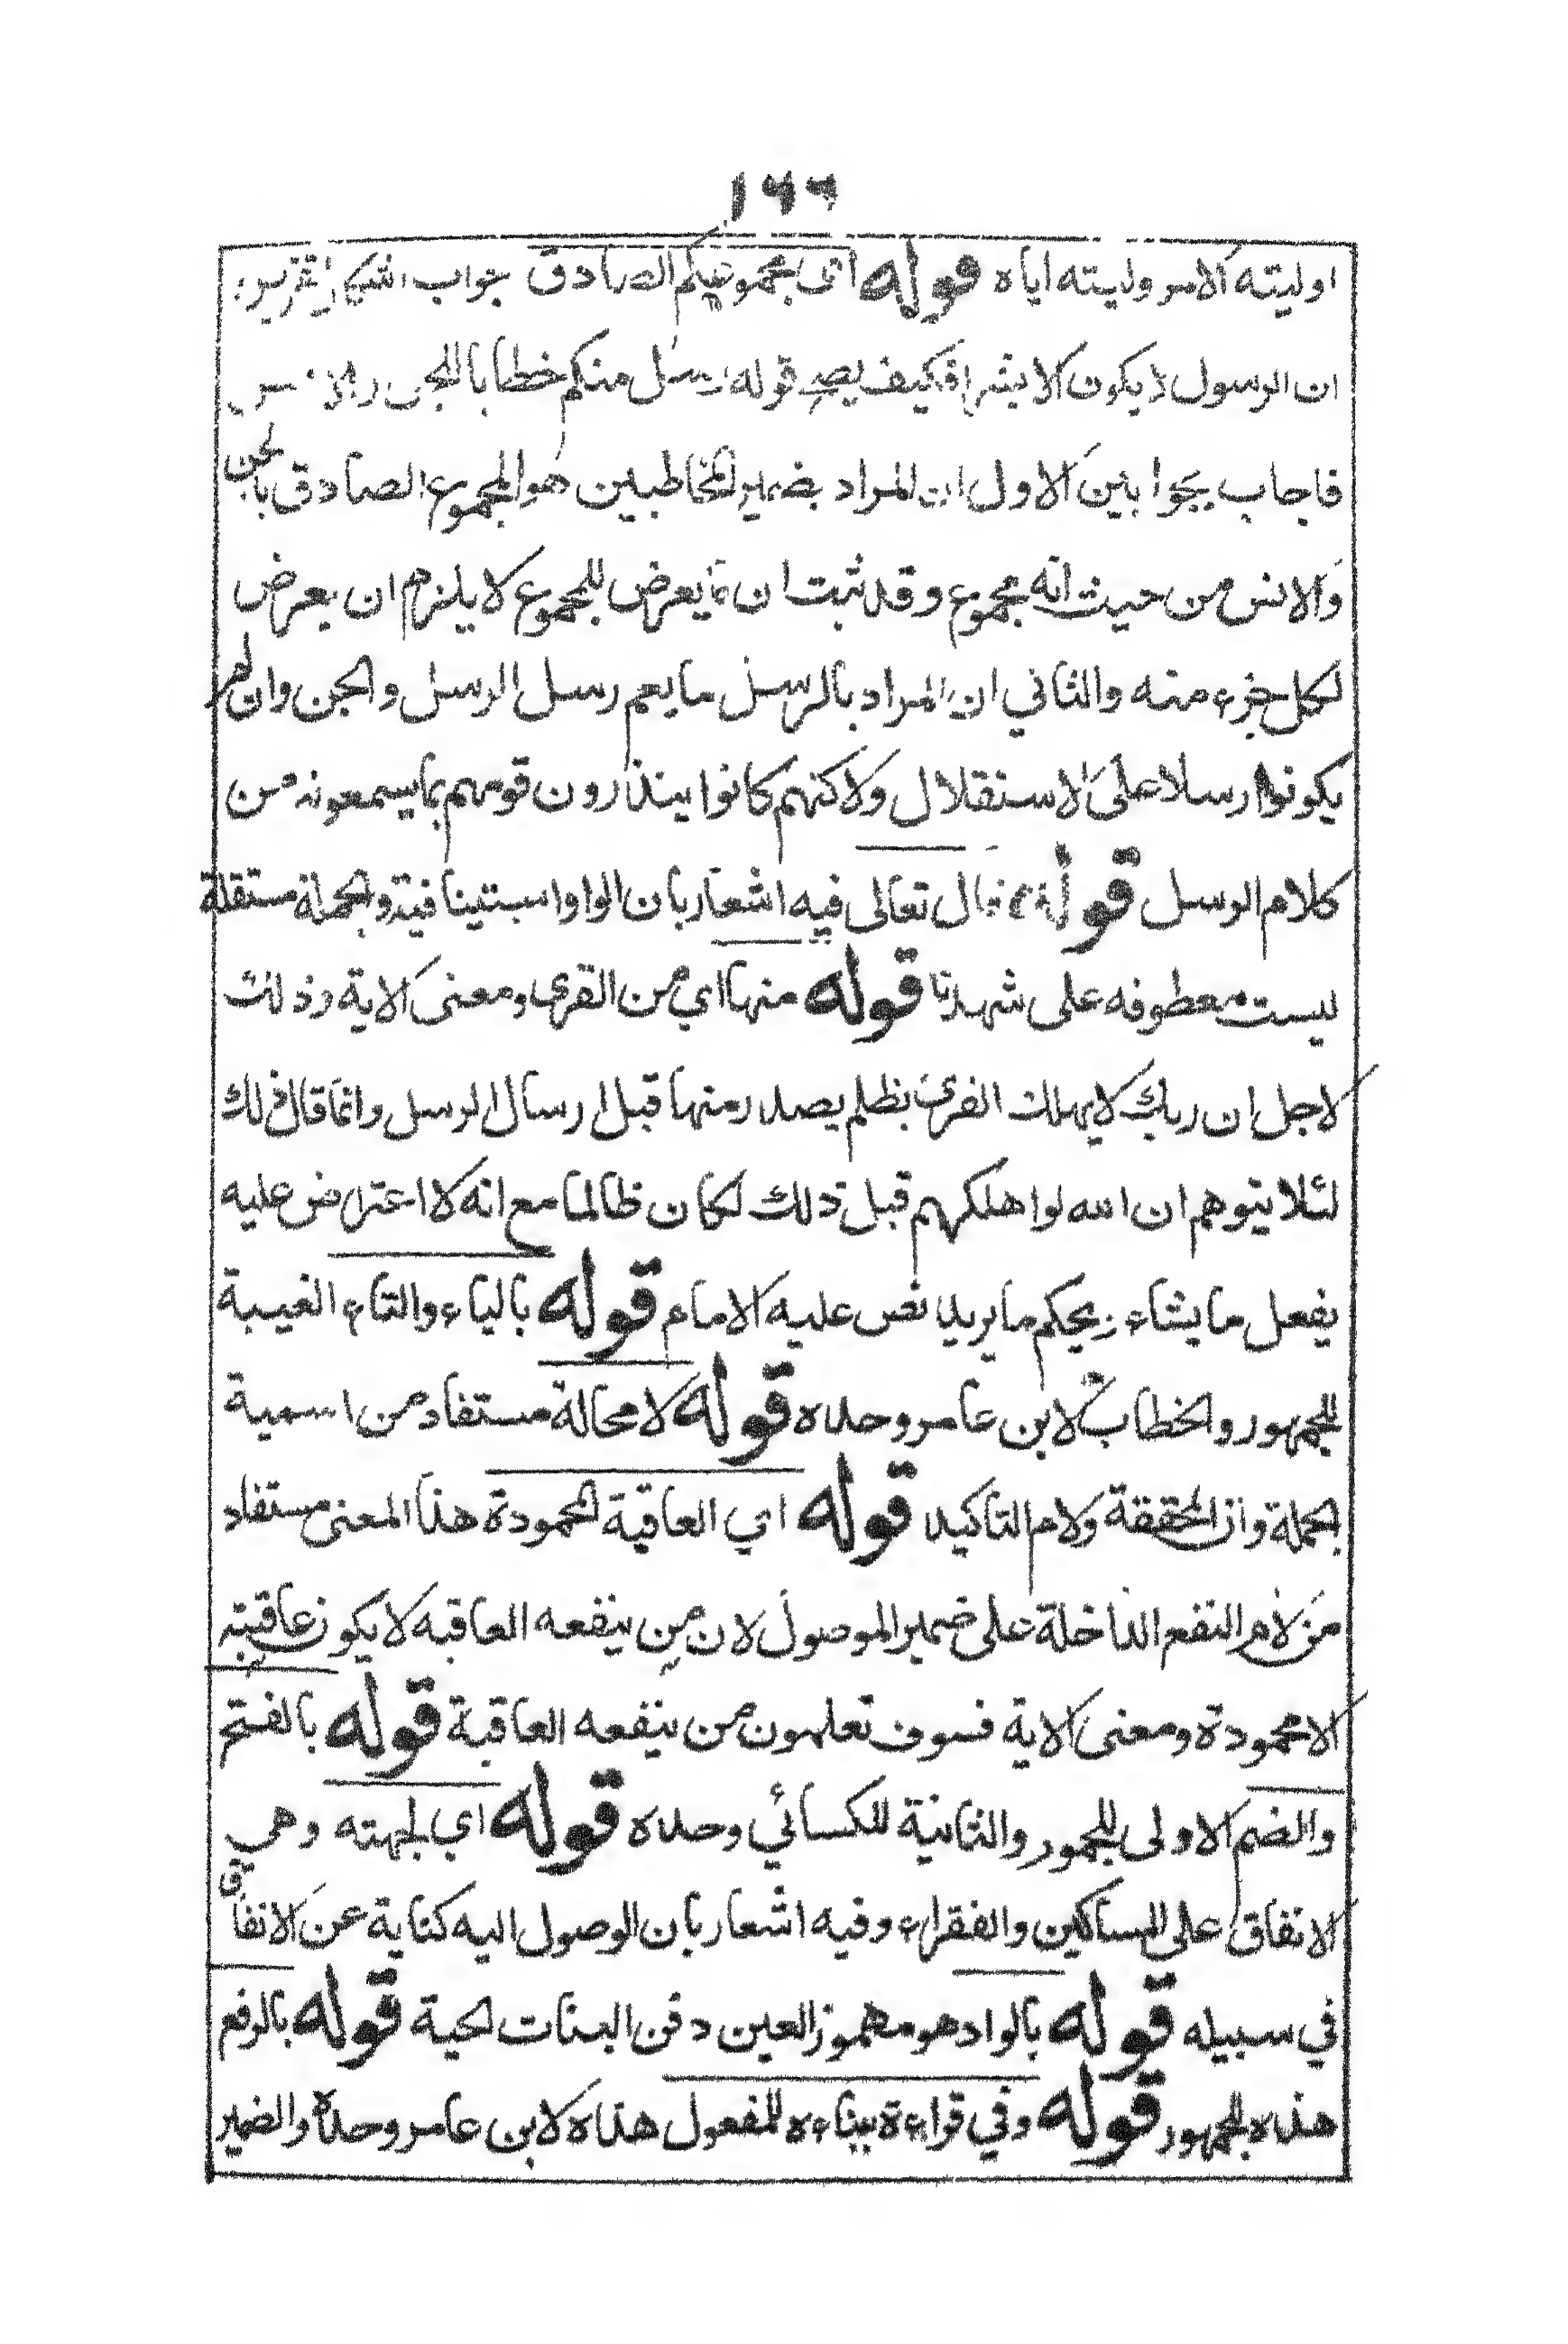 ١٦٦
اوليته الامر وليته اياه قوله اي مجموعكم الصادق جواب اشكال تقريره
ان الرسول لا يكون الا بشرا فكيف يصح قوله رسل منكم خطابا للجن والانس
فاجاب بجوابين الاول ان المراد بضمير المخاطبين هو المجموع الصادق بالجن
والانس من حيث انه مجموع وقد ثبت ان ما يعرض للمجموع لا يلزم ان يعرض
لكل جزء منه والثاني ان المراد بالرسل ما يعم رسل الرسل والجن وان لم
يكونوا رسلا على الاستقلال ولاكنهم كانوا ينذرون قومهم بما يسمعونه من
كلام الرسل قوله قال تعالى فيه اشعار بان الواو استينافية والجملة مستقلة
ليست معطوفه على شهدنا قوله منها اي من القرى ومعنى الاية وذلك
لاجل ان ربك لا يهلك القرى بظلم يصدر منها قبل ارسال الرسل وانما قال ذلك
لئلا يتوهم ان الله لو اهلكهم قبل ذلك لكان ظالما مع انه لا اعتراض عليه
يفعل ما يشاء ويحكم ما يريد نص عليه الامام قوله بالياء والتاء الغيبة
للجمهور والخطاب لابن عامر وحده قوله لا محالة مستفاد من اسمية
الجملة وان المحققة ولام التاكيد قوله اي العاقبة المحمودة هذا المعنى مستفاد
من لام النفع الداخلة على ضمير الموصول لان من ينفعه العاقبه لا يكون عاقبته
الا محمودة ومعنى الاية فسوف تعلمون من ينفعه العاقبة قوله بالفتح
والضم الاولى للجمهور والثانية للكسائي وحده قوله اي لجهته وهي
الانفاق على المساكين والفقراء وفيه اشعار بان الوصول اليه كناية عن الانفاق
في سبيله قوله بالواد هو مهموز العين دفن البنات لحية قوله بالرفع
هذه للجمهور قوله وفي قراءة بيناءه للمفعول هذه لابن عامر وحده والضمير